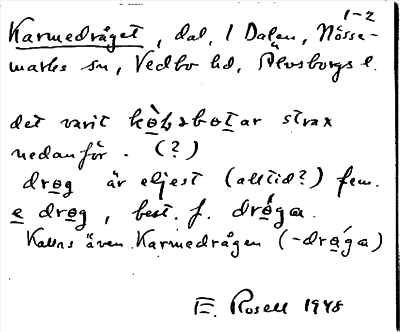 1-2
Karmedråget, dal, i Dalen, Nösse-
marks sn, Vedbo hd, Älvsborgs l.
det varit kò̱ḷabo̱tar strax
nedanför. (?)
dro̱g är eljest (alltid?) fem.
e̱ dro̱g, best. f. dró̱ga.
Kallas även Karmedrågen (-drá̱ga)
E. Rosell 1948